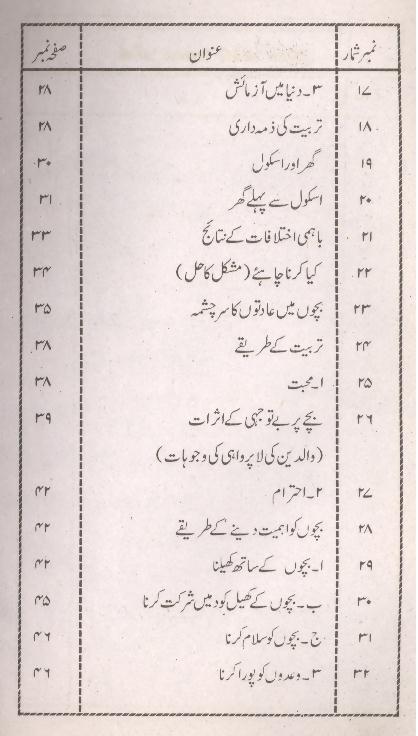 نمبر شمار عنوان صفحہ نمبر
۱۷ ۳۔ دنیا میں آزمائش ۲۸
۱۸ تربیت کی ذمہ داری ۲۸
۱۹ گھر اور اسکول ۳۰
۲۰ اسکول سے پہلے گھر ۳۱
۲۱ باہمی اختلافات کے نتائج ۳۳
۲۲ کیا کرنا چاہئے (مشکل کا حل) ۳۴
۲۳ بچوں میں عادتوں کا سرچشمہ ۳۵
۲۴ تربیت کے طریقے ۳۸
۲۵ ا۔ محبت ۳۸
۲۶ بچے پر بے توجہی کے اثرات ۳۹
(والدین کی لاپرواہی کی وجوہات)
۲۷ ۲۔ احترام ۴۲
۲۸ بچوں کو اہمیت دینے کے طریقے ۴۲
۲۹ ا۔ بچوں کے ساتھ کھیلنا ۴۲
۳۰ ب۔ بچوں کے کھیل کود میں شرکت کرنا ۴۵
۳۱ ج۔ بچوں کو سلام کرنا ۴۶
۳۲ ۳۔ وعدوں کو پورا کرنا ۴۶